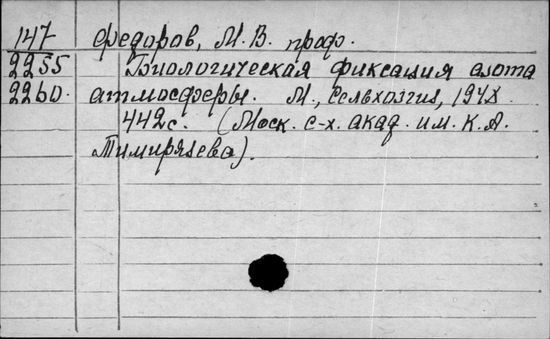 147 Федоров, М. В. проф.
2255 Биологическая фиксация азота
2260. атмосферы. М., Сельхозгиз, 1948.
442с. (Моск. с-х. акад. им. К. А.
Тимирязева).